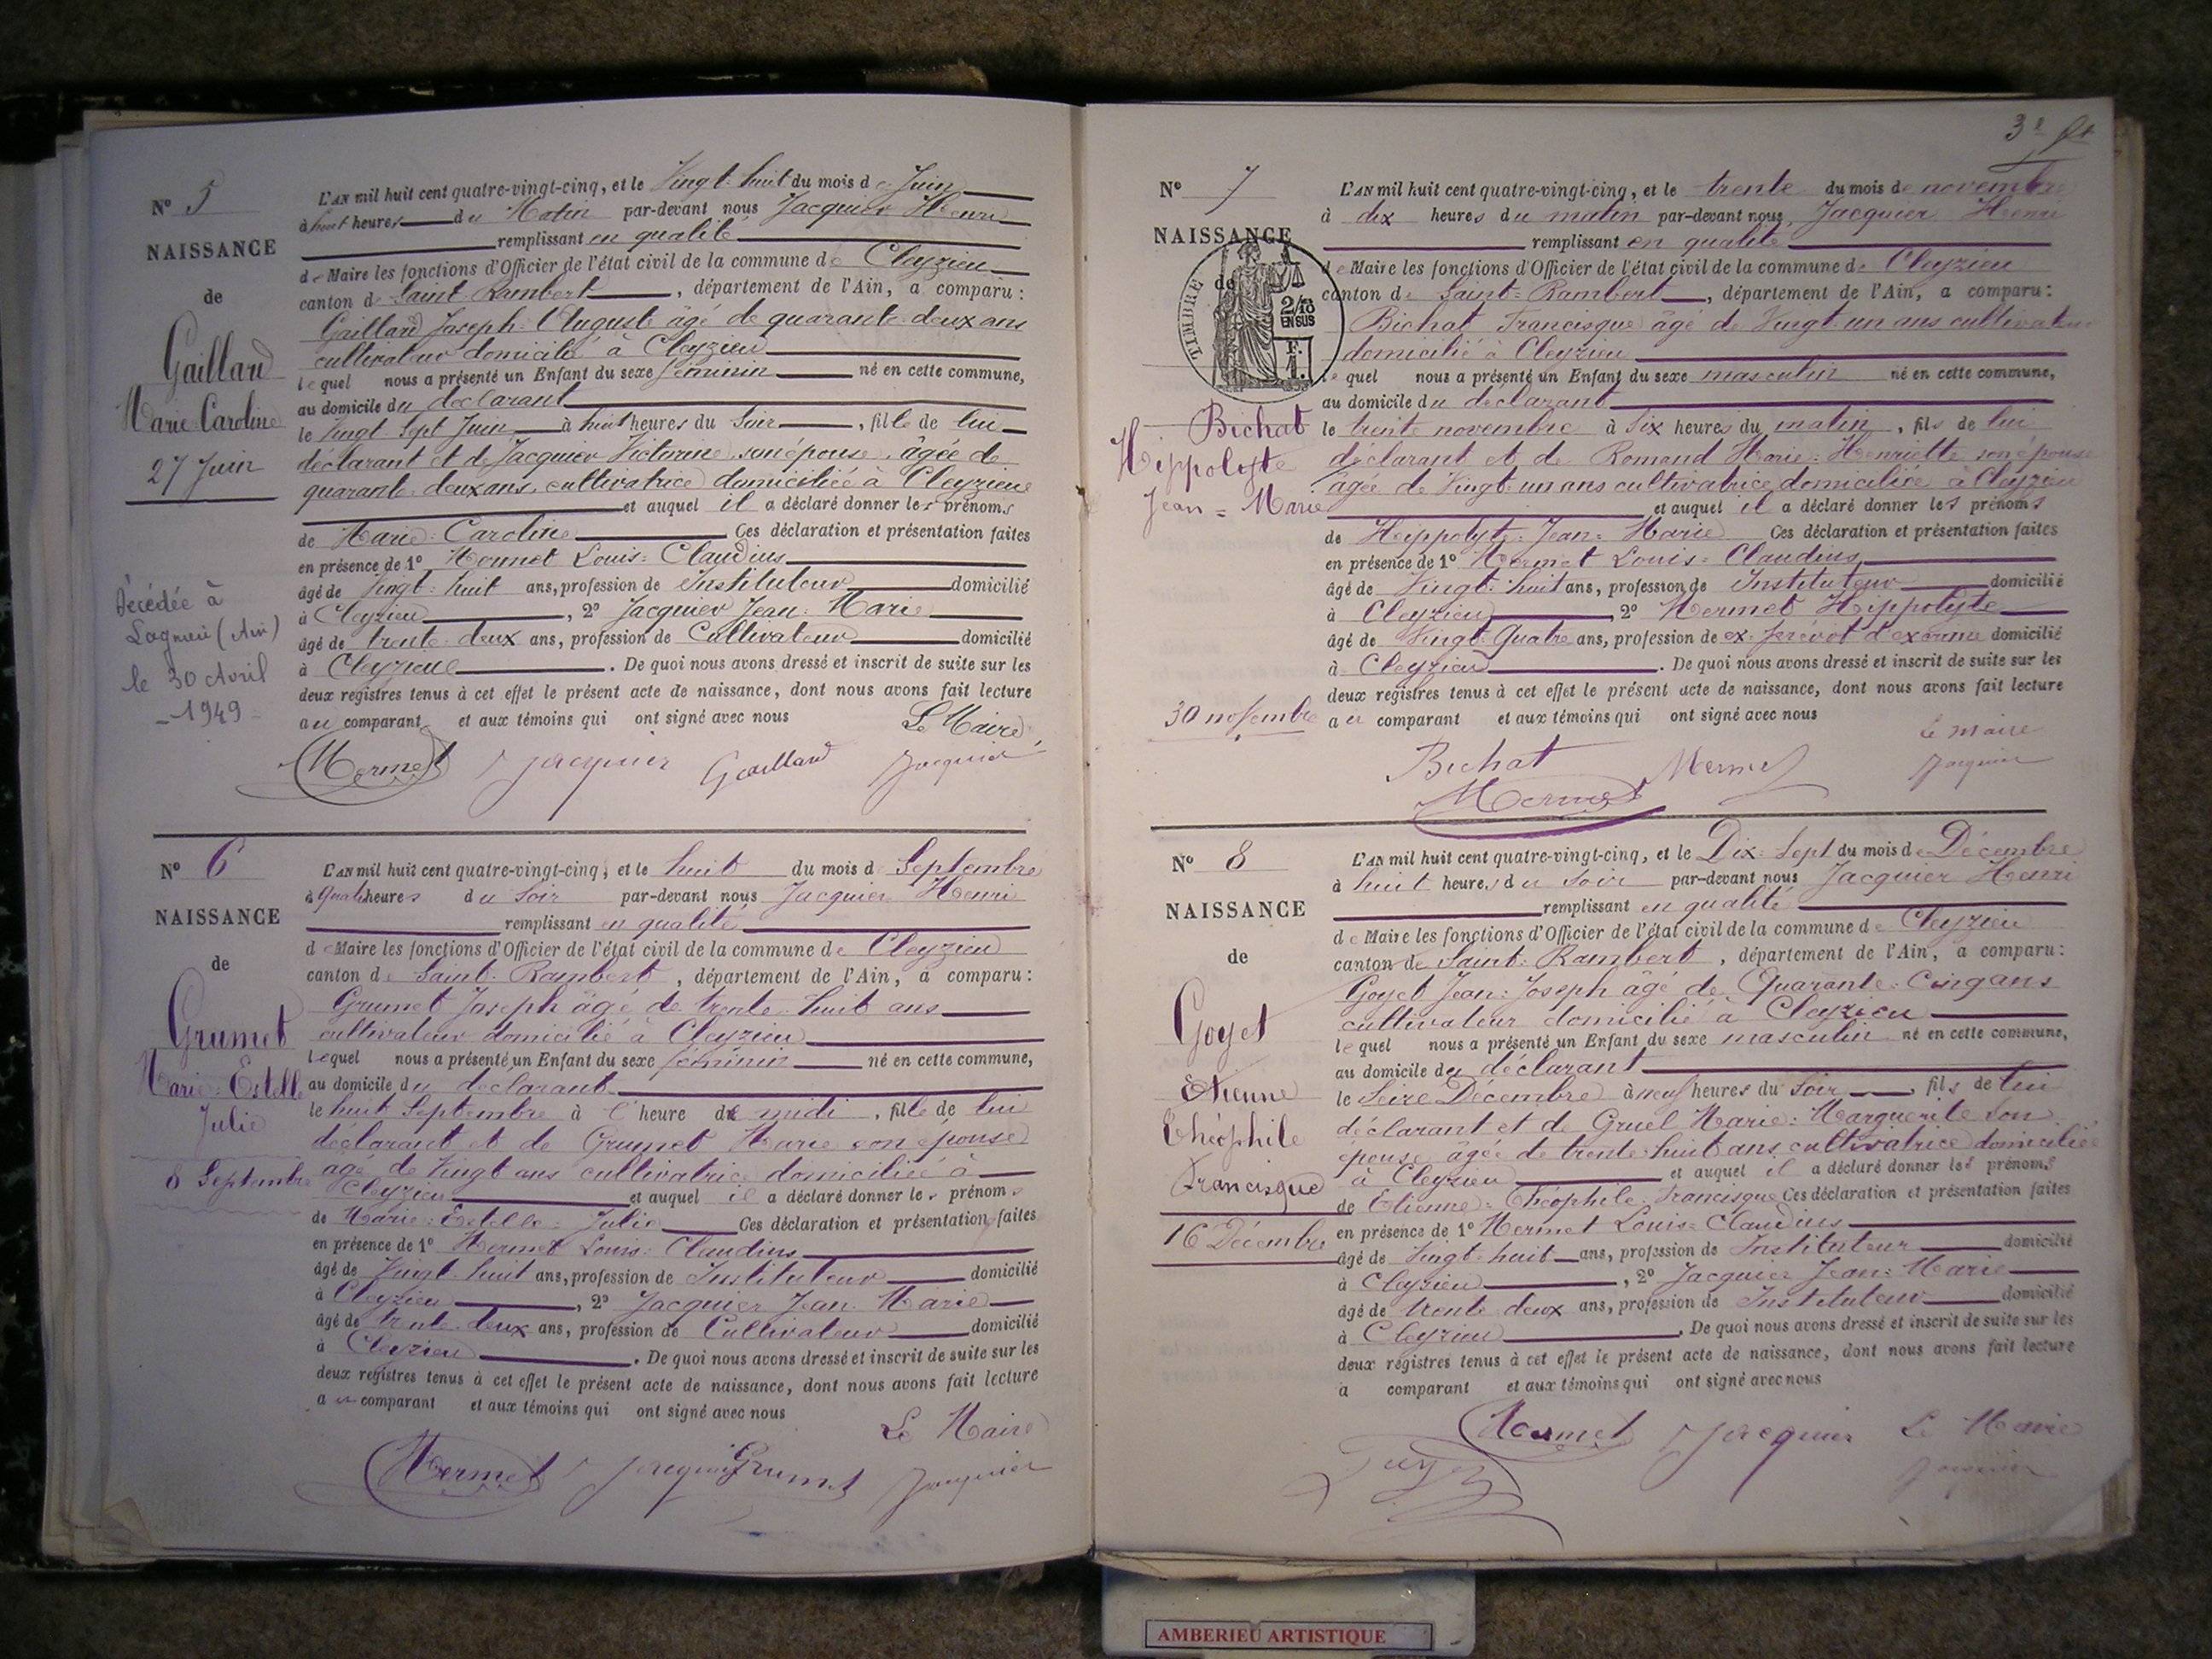 Nº 5
NAISSANCE
de
Gaillard
Marie Caroline
27 Juin
Décédée à
Lagnieu (Ain)
le 30 Avril
1949
L'AN mil huit cent quatre-vingt-cinq, et le Vingt-huit du mois de Juin
à huit heures du Matin par-devant nous Jacquier Henri
remplissant en qualité
de Maire les fonctions d'Officier de l'état civil de la commune de Cleyzieu
canton de Saint-Rambert, département de l'Ain, a comparu :
Gaillard Joseph-Auguste âgé de quarante-deux ans
cultivateur domicilié à Cleyzieu
lequel nous a présenté un Enfant du sexe féminin né en cette commune,
au domicile du déclarant
le Vingt Sept Juin à huit heures du Soir, fille de lui
déclarant et de Jacquier Victorine son épouse, âgée de
quarante-deux ans, cultivatrice domiciliée à Cleyzieu
et auquel il a déclaré donner les prénoms
de Marie-Caroline Ces déclaration et présentation faites
en présence de 1º Mermet Louis-Claudius
âgé de Vingt-huit ans, profession de Instituteur domicilié
à Cleyzieu, 2º Jacquier Jean-Marie
âgé de trente-deux ans, profession de Cultivateur domicilié
à Cleyzieu. De quoi nous avons dressé et inscrit de suite sur les
deux registres tenus à cet effet le présent acte de naissance, dont nous avons fait lecture
au comparant et aux témoins qui ont signé avec nous
Le Maire
Mermet Jacquier Gaillard Jacquier
Nº 6
NAISSANCE
de
Grumet
Marie-Estelle
Julie
8 Septembre
L'AN mil huit cent quatre-vingt-cinq, et le huit du mois de Septembre
à quatre heures du Soir par-devant nous Jacquier Henri
remplissant en qualité
de Maire les fonctions d'Officier de l'état civil de la commune de Cleyzieu
canton de Saint-Rambert, département de l'Ain, a comparu :
Grumet Joseph âgé de trente-huit ans
cultivateur domicilié à Cleyzieu
lequel nous a présenté un Enfant du sexe féminin né en cette commune,
au domicile du déclarant
le huit Septembre à l'heure de midi, fille de lui
déclarant et de Grumet Marie son épouse
agé de Vingt ans cultivatrice domiciliée à
Cleyzieu et auquel il a déclaré donner les prénoms
de Marie-Estelle-Julie Ces déclaration et présentation faites
en présence de 1º Mermet Louis-Claudius
âgé de Vingt-huit ans, profession de Instituteur domicilié
à Cleyzieu, 2º Jacquier Jean-Marie
âgé de trente-deux ans, profession de Cultivateur domicilié
à Cleyzieu. De quoi nous avons dressé et inscrit de suite sur les
deux registres tenus à cet effet le présent acte de naissance, dont nous avons fait lecture
au comparant et aux témoins qui ont signé avec nous
Le Maire
Mermet Jacquier Grumet Jacquier
3e
Nº 7
NAISSANCE
de
TIMBRE
2/10
EN SUS
F.
1.
Bichat
Hippolyte
Jean=Marie
30 novembre
L'AN mil huit cent quatre-vingt-cinq, et le trente du mois de novembre
à dix heures du matin par-devant nous Jacquier Henri
remplissant en qualité
de Maire les fonctions d'Officier de l'état civil de la commune de Cleyzieu
canton de Saint=Rambert, département de l'Ain, a comparu :
Bichat Francisque âgé de Vingt-un ans cultivateur
domicilié à Cleyzieu
lequel nous a présenté un Enfant du sexe masculin né en cette commune,
au domicile du déclarant
le trente novembre à Six heures du matin, fils de lui
déclarant et de Romand Marie-Henriette son épouse
agée de Vingt-un ans cultivatrice domiciliée à Cleyzieu
et auquel il a déclaré donner les prénoms
de Hippolyte-Jean-Marie Ces déclaration et présentation faites
en présence de 1º Mermet Louis=Claudius
âgé de Vingt-huit ans, profession de Instituteur domicilié
à Cleyzieu, 2º Mermet Hippolyte
âgé de Vingt-Quatre ans, profession de ex-prévôt d'exerime domicilié
à Cleyzieu. De quoi nous avons dressé et inscrit de suite sur les
deux registres tenus à cet effet le présent acte de naissance, dont nous avons fait lecture
au comparant et aux témoins qui ont signé avec nous
Le Maire
Bichat Mermet Jacquier
Mermet
Nº 8
NAISSANCE
de
Goyet
Etienne
Théophile
Francisque
16 Décembre
L'AN mil huit cent quatre-vingt-cinq, et le Dix-Sept du mois de Décembre
à huit heures du Soir par-devant nous Jacquier Henri
remplissant en qualité
de Maire les fonctions d'Officier de l'état civil de la commune de Cleyzieu
canton de Saint-Rambert, département de l'Ain, a comparu :
Goyet Jean-Joseph âgé de Quarante-Cinq ans
cultivateur domicilié à Cleyzieu
lequel nous a présenté un Enfant du sexe masculin né en cette commune,
au domicile du déclarant
le Seize Décembre à neuf heures du Soir fils de lui
déclarant et de Gruel Marie-Marguerite son
épouse âgée de trente-huit ans cultivatrice domiciliée
à Cleyzieu et auquel il a déclaré donner les prénoms
de Etienne-Théophile-Francisque Ces déclaration et présentation faites
en présence de 1º Mermet Louis=Claudius
âgé de Vingt-huit ans, profession de Instituteur domicilié
à Cleyzieu, 2º Jacquier Jean-Marie
âgé de trente-deux ans, profession de Instituteur domicilié
à Cleyzieu. De quoi nous avons dressé et inscrit de suite sur les
deux registres tenus à cet effet le présent acte de naissance, dont nous avons fait lecture
à comparant et aux témoins qui ont signé avec nous
Mermet Jacquier Le Maire
Jacquier
AMBERIEU ARTISTIQUE